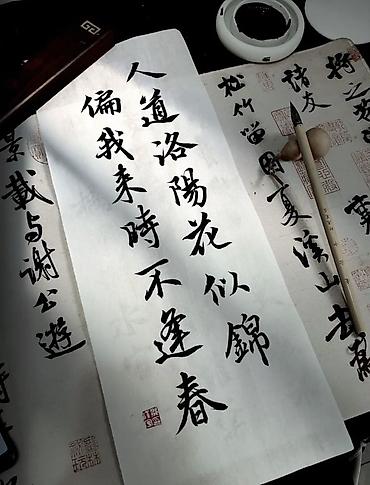 将之
諸友
松竹留因夏溪山去為
人道洛陽花似錦
偏我来時不逢春
景載与謝公遊